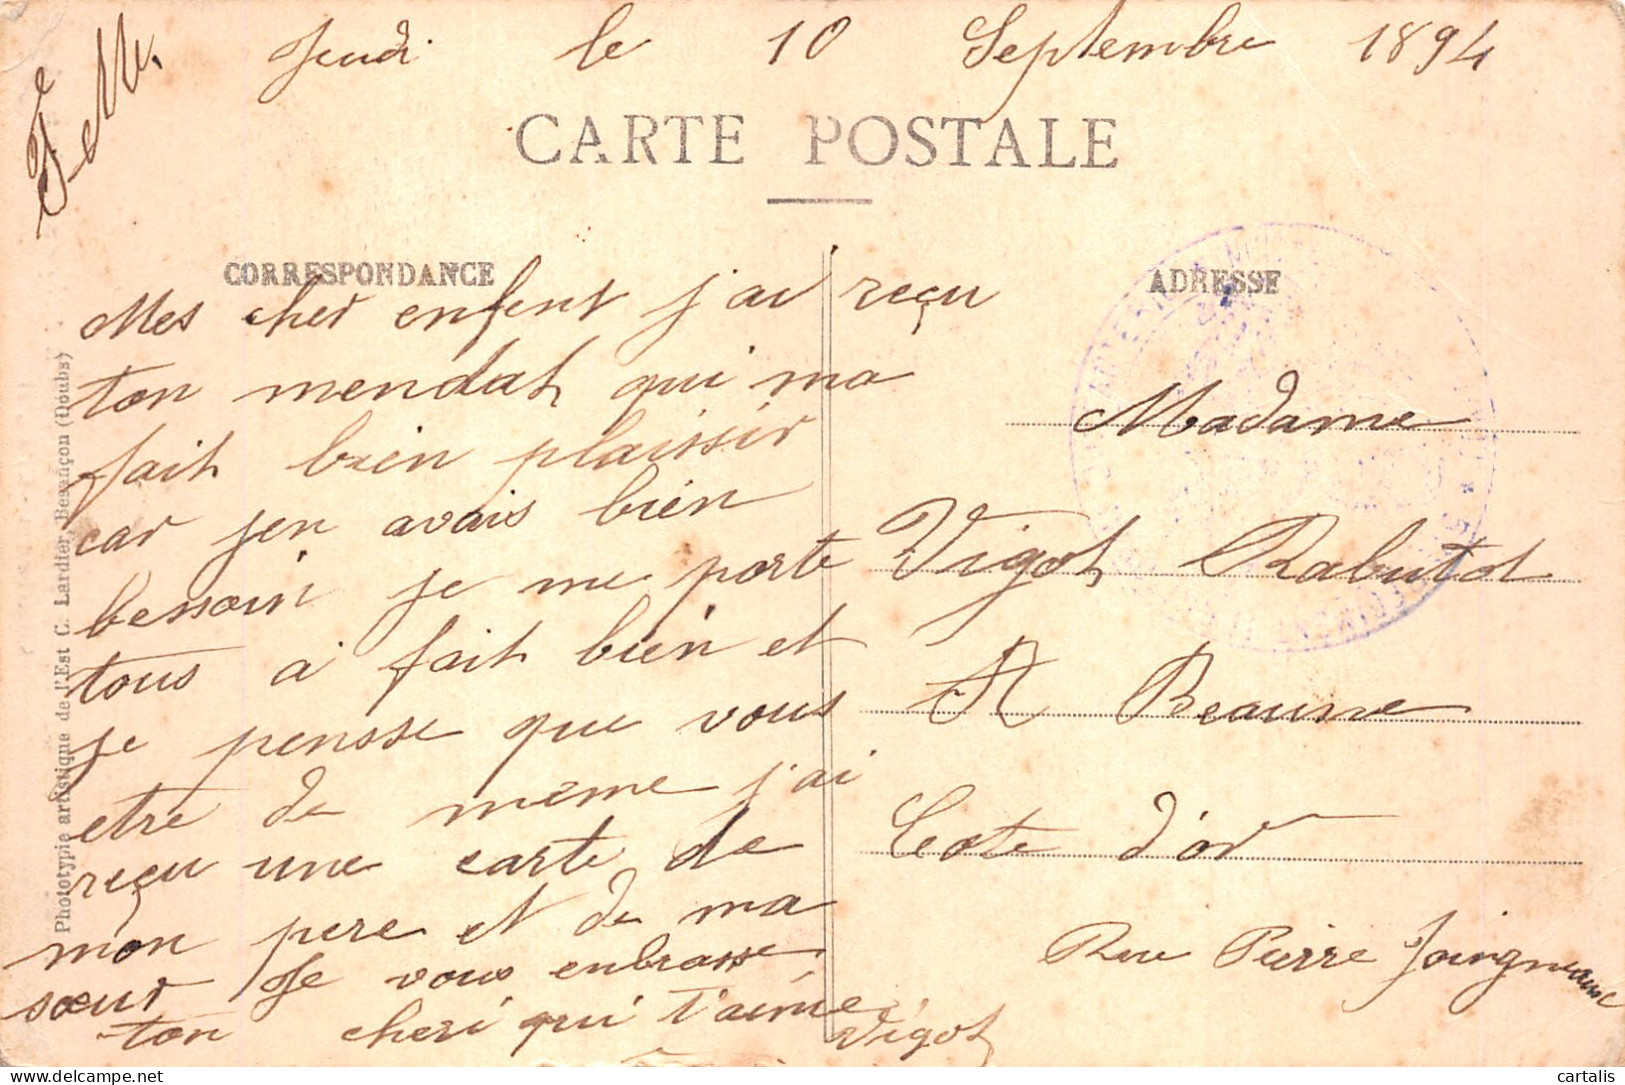 Fe Me.
Jeudi le 10 Septembre 1894
CARTE POSTALE
CORRESPONDANCE
ADRESSE
Mes cher enfent j'ai reçu
ton mendat qui ma
fait bien plaissir
car jen avais bien
bessoin je me porte
tous a fait bien et
je pensse que vous
etre de même j'ai
reçu une carte de
mon pere et de ma
sœur Je vous enbrasse
ton cheri qui t'aime
Vigot
Madame
Vigot Rabutot
A Beaune
Cote d'or
Rue Pierre Joigneaux
Phototypie artistique de l'Est C. Lardier, Besançon (Doubs)
cartalis